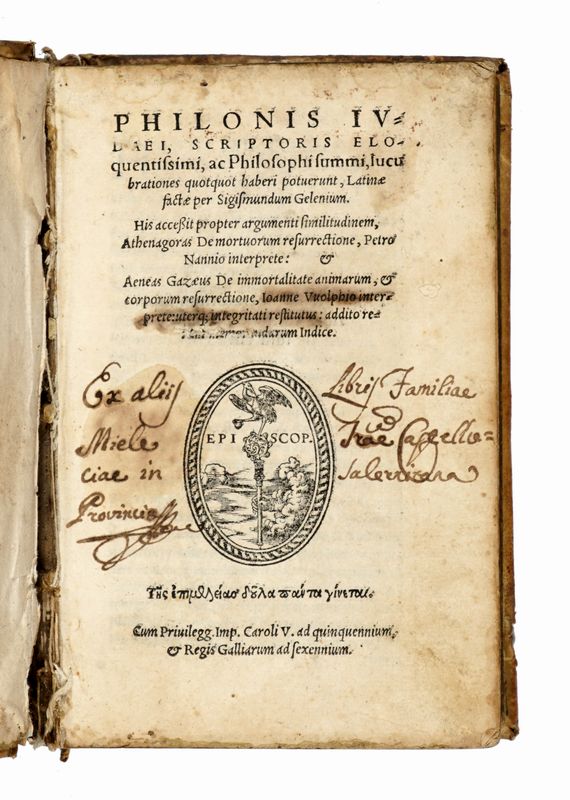 PHILONIS IV-
DAEI, SCRIPTORIS ELO-
quentissimi, ac Philosophi summi, lucu
brationes quotquot haberi potuerunt, Latinæ
factæ per Sigismundum Gelenium.
His acceßit propter argumenti similitudinem,
Athenagoras De mortuorum resurrectione, Petro
Nannio interprete: &
Aeneas Gazæus De immortalitate animarum, &
corporum resurrectione, Ioanne Vuolphio inter-
prete: uterq; integritati restitutus: addito re-
rum Indice.
Ex aliis Libris Familiae
EPI SCOP.
Miele
ciae in Salernitana
Provincia
Τῆς ἐπιμελείας δοῦλα πάντα γίνεται.
Cum Priuilegg. Imp. Caroli V. ad quinquennium,
& Regis Galliarum ad sexennium.